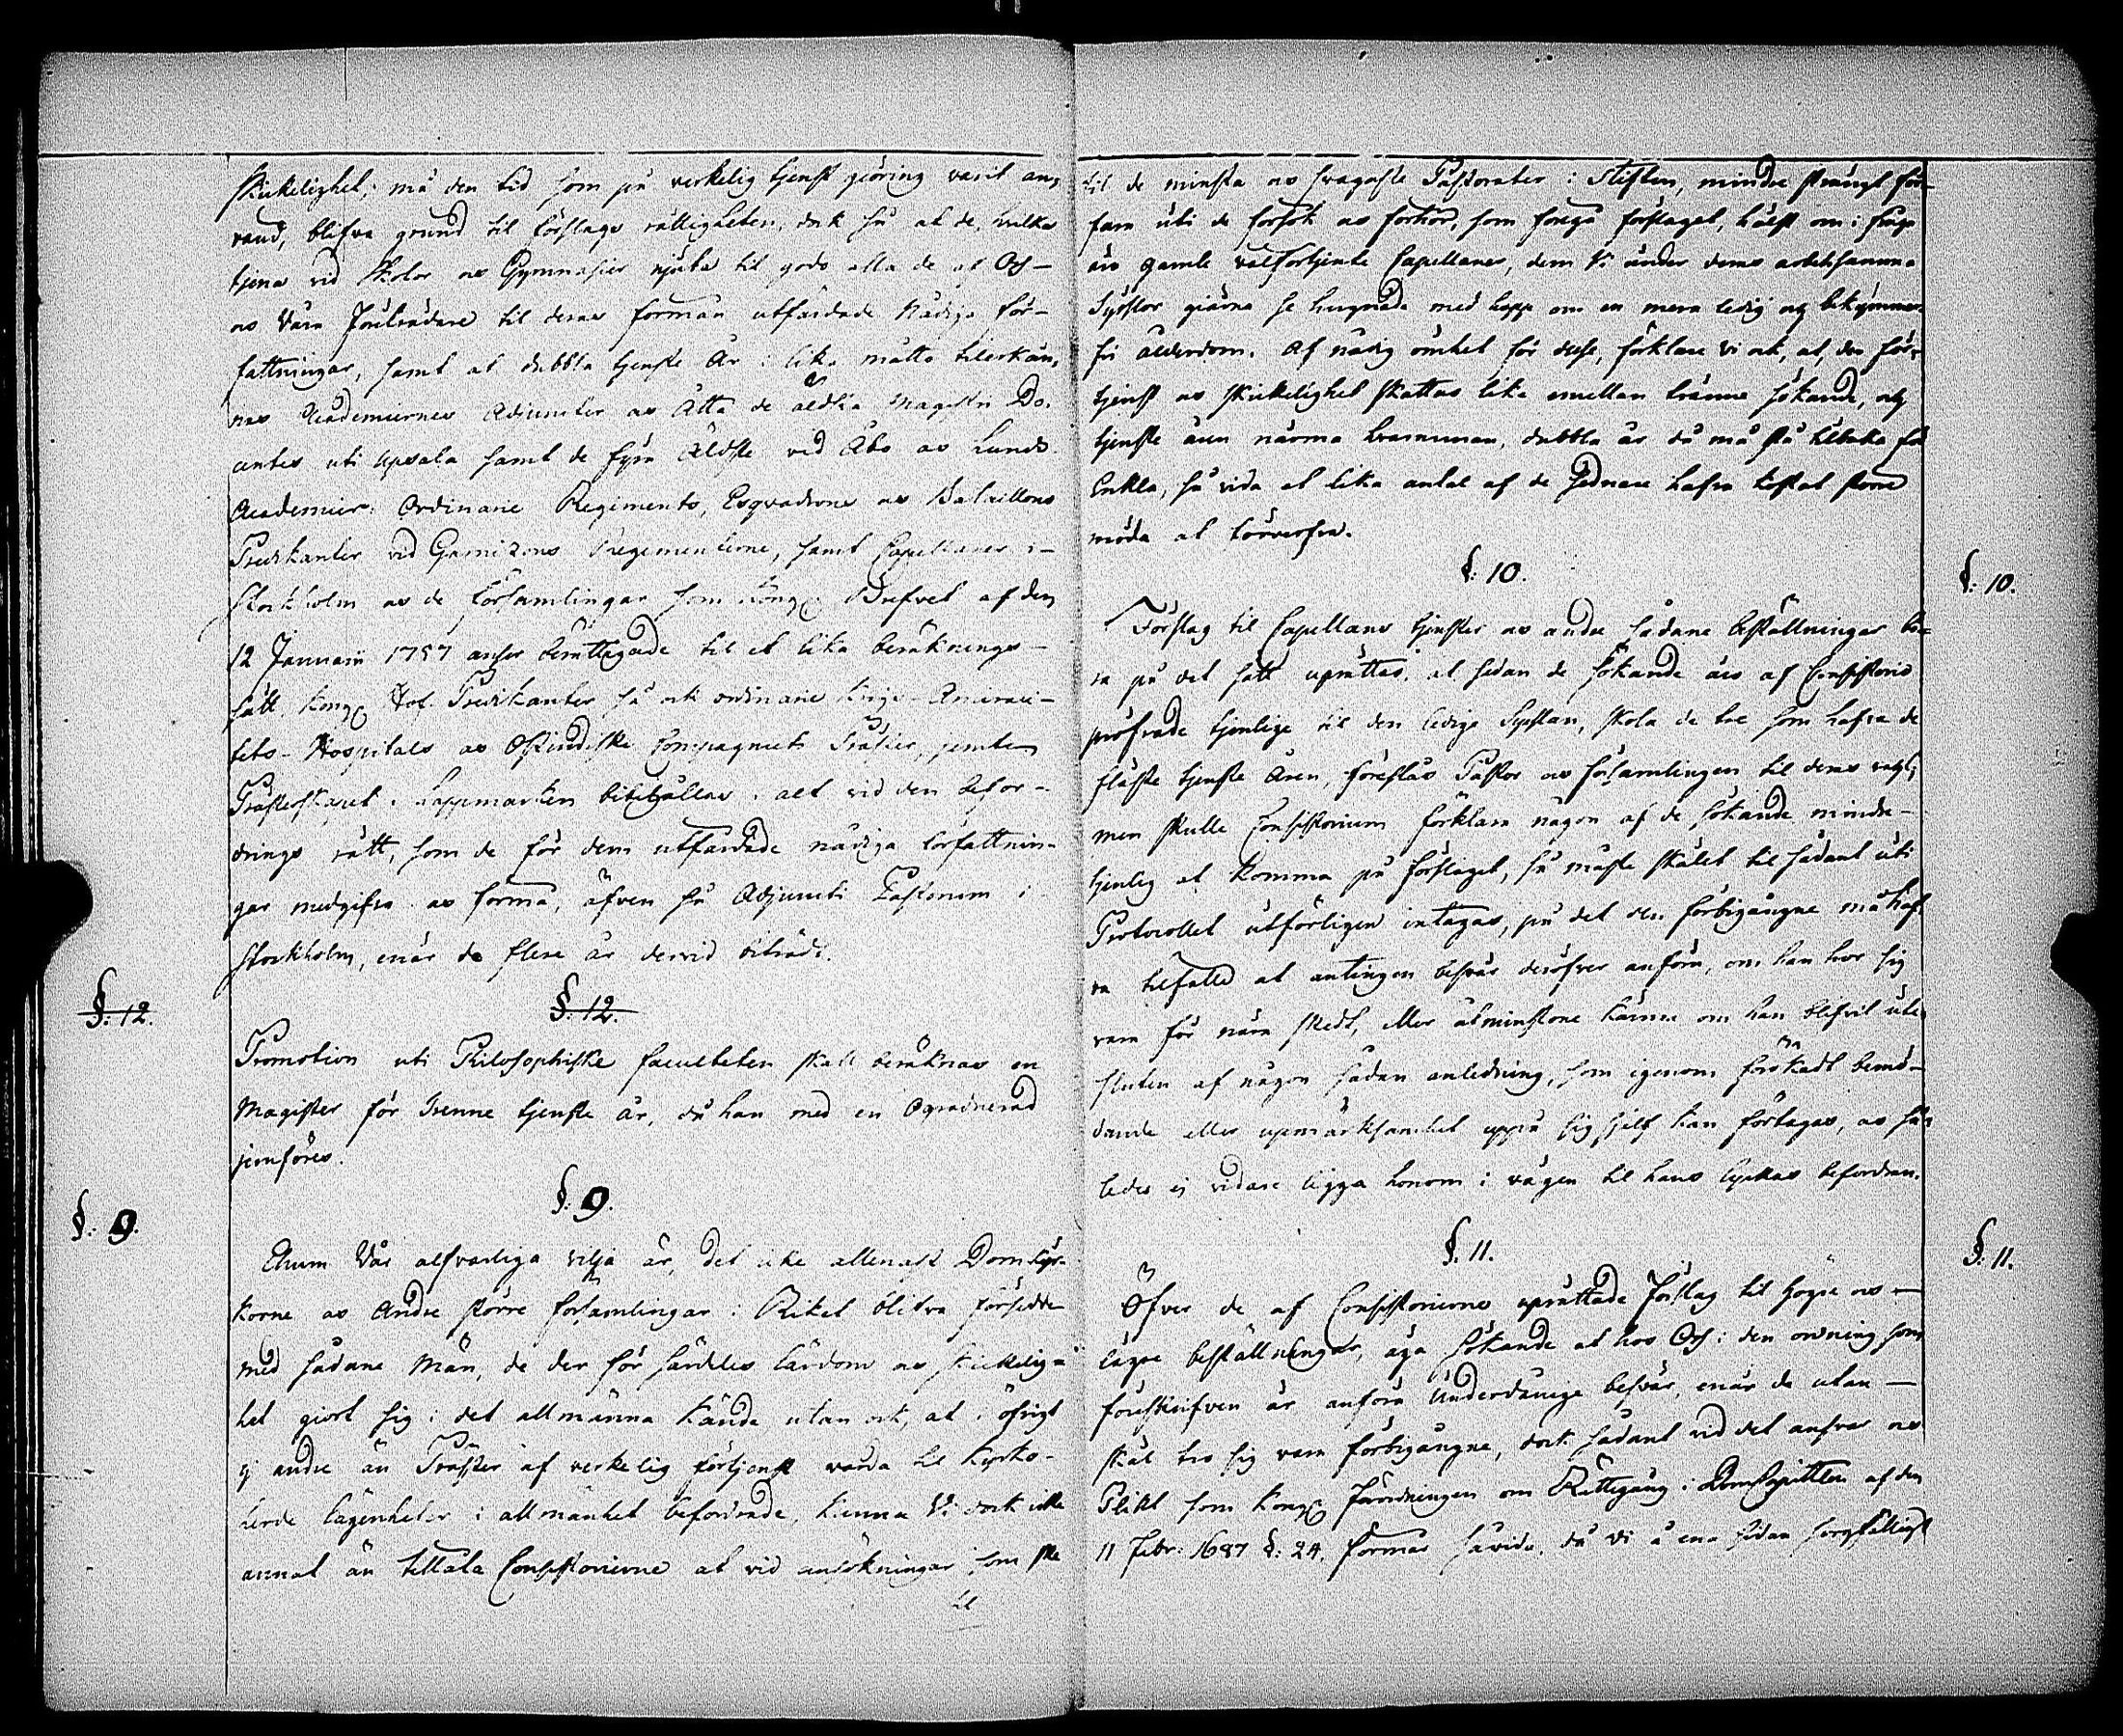 skickelighet, må den tid som på verkelig tjenst giöring varit an-
vänd, blifva grund til förslags rättigheten, dock så at de, hvilka
tjena vid Skolor os Gymnasier njuta til godo alla de af Oss
os Våra Företrädare til deras förmån utfärdade Nådiga För-
fattningar, samt at dubbla tjenste År i lika måtto tilerkän-
nas Academiernes Adjuncter os Åtta de äldsta Magistri Do-
centes uti Upsala samt de fyra Äldste vid Åbo os Lunds
Academier. Ordinarie Regiments, Esqvadrons os Bataillons
Predikanter vid Garnizons Regementerne, samt Capellaner i
Stockholm os de Församlingar som Kongl. Brefvet af den
12 Januarii 1757 anser berättigade til et lika beräknings-
sätt. Kongl. Hof-Predikanter så ock ordinarie Krigs-Amirali-
tets-Hospitals os Ostindiske Compagniets Präster, jemte
Prästerskapet i Lappmarken bibehållas alt vid den befor-
drings rätt, som de för dem utfärdade nådiga författnin-
gar medgifva os förmå, äfven så Adjuncti Pastorum i
Stockholm, enär de flere år dervid biträdt.
§. 12.
§. 12.
Promotion uti Philosophiske faculteten skall beräknas en
Magister för trenne tjenste år, då han med en Ograduerad
jemföres.
§. 9.
§. 9.
Ehum Vår alfvarliga vilja är, det icke allenast Domkyr-
korne os Andre större församlingar i Riket blifva försedde
med sådane Män, de der för särdeles lärdom os skickelig-
het giort sig i det allmänna kända utan ock, at i öfrigt
ej andre än Präster af verkelig förtjenst varda til Kyrko-
herde lägenheter i allmänhet befordrade, kunna Vi dock icke
annat än tillåta Consistorierne at vid ansökningar, som ske
til
til de minsta os svagaste Pastorater i Stiften, mindre strängt för-
fara uti de försök os förhör, som föregå förslaget, hälst om i fråga
äro gamle välförtjente Capellaner, dem Vi under deras arbetsamma
Sysslor giärna se hugnade med hopp om en mera ledig och bekymmer-
fri ålderdom. Af nådig ömhet för desse, förklare Vi ock, at, der för-
tjenst os skickelighet skattas lika emellan tvänne sökande, och
tjenste åren närma hvarannan, dubbla år då må stå tilbaka för
Enkla, så vida et lika antal af de sednare hafva kostat större
möda at förvärfva.
§. 10.
§. 10.
Förslag til Capellans tjenster os andre sådane beställningar bö-
ra på det sätt uprättas, at sedan de sökande äro af Consistorio
pröfvade tjenlige til den lediga Sysslan, skola de tre som hafva de
fläste tjenste Åren, föreslås Pastor os församlingen til deras val;
men skulle Consistorium förklara någon af de sökande mindre
tjenlig at komma på förslaget, så måste skälet til sådant uti
Protocollet utförligen intagas, på det den förbigångne må haf-
va tilfälle at antingen besvär deröfver anföra, om han tror sig
vara för nära skedt, eller åtminstone känna om han blifvit ute-
sluten af någon sådan anledning, som igenom förökadt bemö-
dande eller upmärksamhet uppå sig sjelf kan förtagas, os så-
ledes ej vidare ligga honom i vägen til hans lyckas befordran.
§. 11.
§. 11.
Öfver de af Consistorierne uprättade Förslag til högre os
lägre beställningar, äga sökande at hos Oss i den ordning som
föreskrifven är anföra Underdånige besvär, enär de utan
skäl tro sig vara förbigångne, dock sådant vid det ansvar os
Plikt som Kongl. Förordningen om Rättegång i DomCapitlen af den
11 Febr: 1687 §. 24. förmår såvida, då Vi å ena sidan sorgfälligt